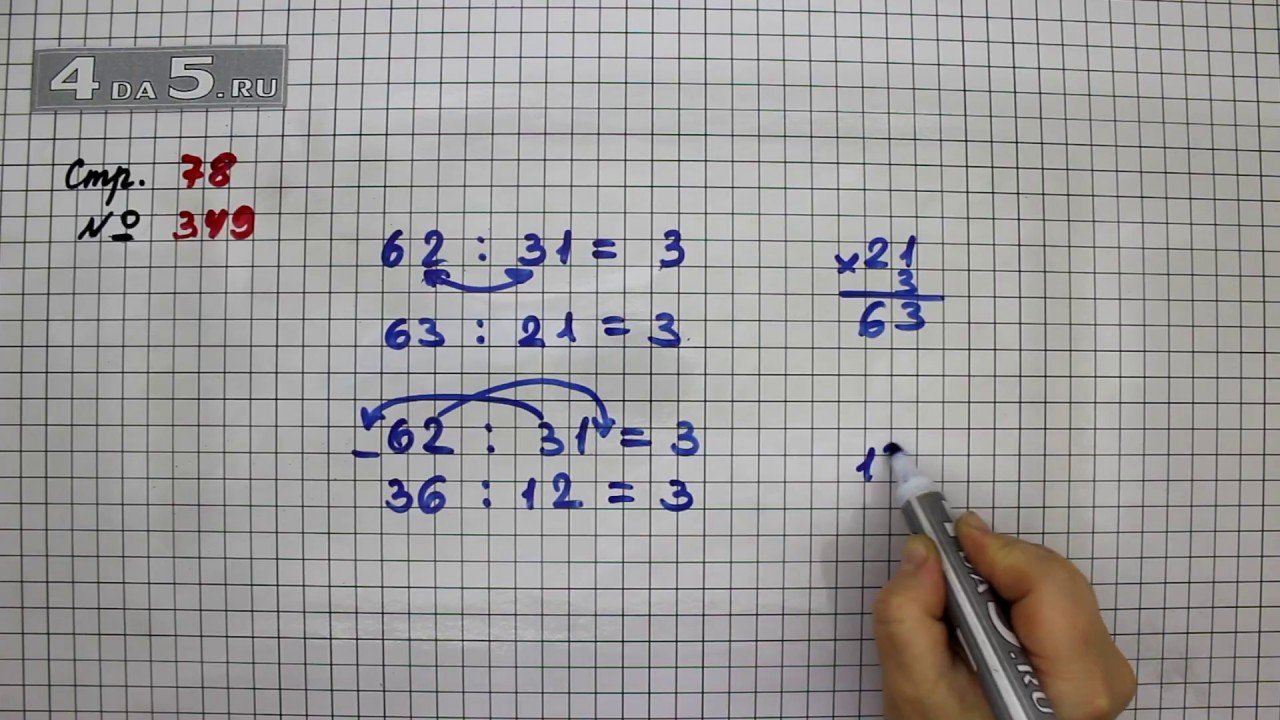 4 DA 5.RU
Стр. 78
№ 349
62 : 31 = 3
63 : 21 = 3
62 : 31 = 3
36 : 12 = 3
× 21
3
63
1
DA 5.RU